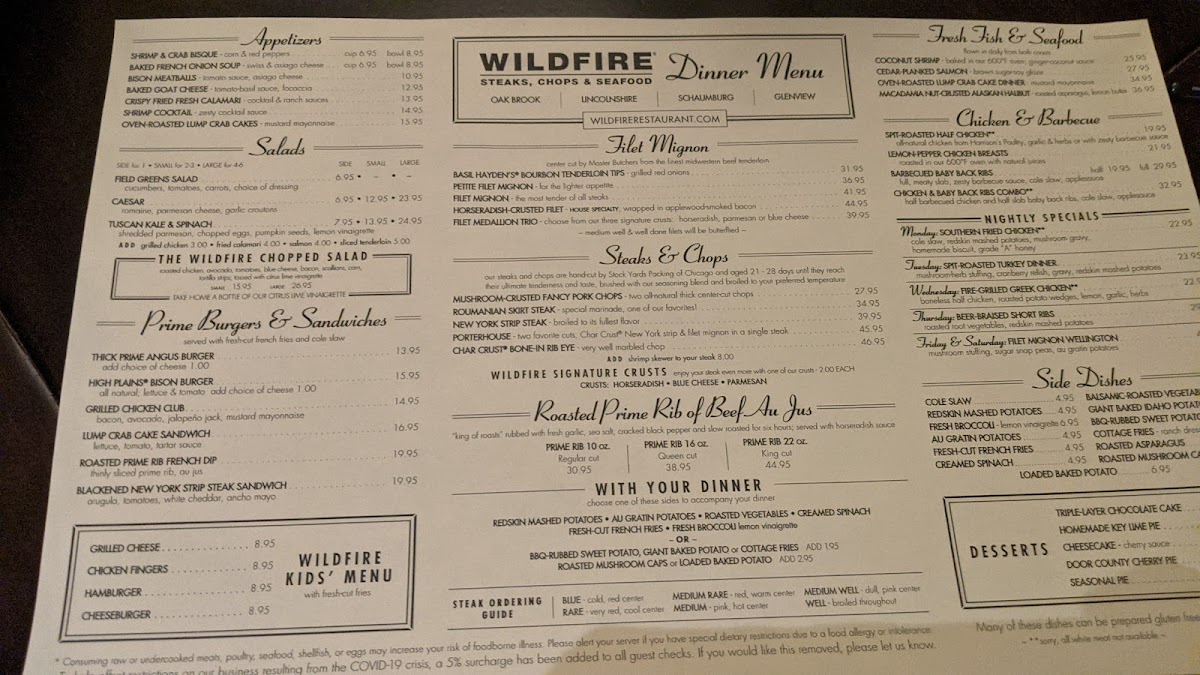 Appetizers
SHRIMP & CRAB BISQUE - corn & red peppers cup 6.95 bowl 8.95
BAKED FRENCH ONION SOUP - swiss & asiago cheese cup 6.95 bowl 8.95
BISON MEATBALLS - tomato sauce, asiago cheese 10.95
BAKED GOAT CHEESE - tomato-basil sauce, focaccia 12.95
CRISPY FRIED FRESH CALAMARI - cocktail & ranch sauces 13.95
SHRIMP COCKTAIL - zesty cocktail sauce 14.95
OVEN-ROASTED LUMP CRAB CAKES - mustard mayonnaise 15.95
Salads
SIDE for 1 • SMALL for 2-3 • LARGE for 4-6 SIDE SMALL LARGE
FIELD GREENS SALAD 6.95 • – • –
cucumbers, tomatoes, carrots, choice of dressing
CAESAR 6.95 • 12.95 • 23.95
romaine, parmesan cheese, garlic croutons
TUSCAN KALE & SPINACH 7.95 • 13.95 • 24.95
shredded parmesan, chopped eggs, pumpkin seeds, lemon vinaigrette
ADD grilled chicken 3.00 • fried calamari 4.00 • salmon 4.00 • sliced tenderloin 5.00
THE WILDFIRE CHOPPED SALAD
roasted chicken, avocado, tomatoes, blue cheese, bacon, scallions, corn,
tortilla strips, tossed with citrus lime vinaigrette
SMALL 15.95 LARGE 26.95
TAKE HOME A BOTTLE OF OUR CITRUS LIME VINAIGRETTE
Prime Burgers & Sandwiches
served with fresh-cut french fries and cole slaw
THICK PRIME ANGUS BURGER 13.95
add choice of cheese 1.00
HIGH PLAINS® BISON BURGER 15.95
all natural; lettuce & tomato add choice of cheese 1.00
GRILLED CHICKEN CLUB 14.95
bacon, avocado, jalapeño jack, mustard mayonnaise
LUMP CRAB CAKE SANDWICH 16.95
lettuce, tomato, tartar sauce
ROASTED PRIME RIB FRENCH DIP 19.95
thinly sliced prime rib, au jus
BLACKENED NEW YORK STRIP STEAK SANDWICH 19.95
arugula, tomatoes, white cheddar, ancho mayo
GRILLED CHEESE 8.95
CHICKEN FINGERS 8.95
HAMBURGER 8.95
CHEESEBURGER 8.95
WILDFIRE
KIDS' MENU
with fresh-cut fries
WILDFIRE®
STEAKS, CHOPS & SEAFOOD
Dinner Menu
OAK BROOK | LINCOLNSHIRE | SCHAUMBURG | GLENVIEW
WILDFIRERESTAURANT.COM
Filet Mignon
center cut by Master Butchers from the finest midwestern beef tenderloin
BASIL HAYDEN'S® BOURBON TENDERLOIN TIPS - grilled red onions 31.95
PETITE FILET MIGNON - for the lighter appetite 36.95
FILET MIGNON - the most tender of all steaks 41.95
HORSERADISH-CRUSTED FILET - HOUSE SPECIALTY, wrapped in applewood-smoked bacon 44.95
FILET MEDALLION TRIO - choose from our three signature crusts: horseradish, parmesan or blue cheese 39.95
– medium well & well done filets will be butterflied –
Steaks & Chops
our steaks and chops are hand-cut by Stock Yards Packing of Chicago and aged 21 - 28 days until they reach
their ultimate tenderness and taste, brushed with our seasoning blend and broiled to your preferred temperature
MUSHROOM-CRUSTED FANCY PORK CHOPS - two all-natural thick center-cut chops 27.95
ROUMANIAN SKIRT STEAK - special marinade, one of our favorites! 34.95
NEW YORK STRIP STEAK - broiled to its fullest flavor 39.95
PORTERHOUSE - two favorite cuts, Char Crust® New York strip & filet mignon in a single steak 45.95
CHAR CRUST® BONE-IN RIB EYE - very well marbled chop 46.95
ADD shrimp skewer to your steak 8.00
WILDFIRE SIGNATURE CRUSTS enjoy your steak even more with one of our crusts - 2.00 EACH
CRUSTS: HORSERADISH • BLUE CHEESE • PARMESAN
Roasted Prime Rib of Beef Au Jus
"king of roasts" rubbed with fresh garlic, sea salt, cracked black pepper and slow roasted for six hours; served with horseradish sauce
PRIME RIB 10 oz. PRIME RIB 16 oz. PRIME RIB 22 oz.
Regular cut Queen cut King cut
30.95 38.95 44.95
WITH YOUR DINNER
choose one of these sides to accompany your dinner
REDSKIN MASHED POTATOES • AU GRATIN POTATOES • ROASTED VEGETABLES • CREAMED SPINACH
FRESH-CUT FRENCH FRIES • FRESH BROCCOLI lemon vinaigrette
– OR –
BBQ-RUBBED SWEET POTATO, GIANT BAKED POTATO or COTTAGE FRIES ADD 1.95
ROASTED MUSHROOM CAPS or LOADED BAKED POTATO ADD 2.95
STEAK ORDERING GUIDE
BLUE - cold, red center MEDIUM RARE - red, warm center MEDIUM WELL - dull, pink center
RARE - very red, cool center MEDIUM - pink, hot center WELL - broiled throughout
Fresh Fish & Seafood
flown in daily from both coasts
COCONUT SHRIMP - baked in our 600°F oven, ginger-coconut sauce 25.95
CEDAR-PLANKED SALMON - brown sugar-soy glaze 27.95
OVEN-ROASTED LUMP CRAB CAKE DINNER - mustard mayonnaise 34.95
MACADAMIA NUT-CRUSTED ALASKAN HALIBUT - roasted asparagus, lemon butter 36.95
Chicken & Barbecue
SPIT-ROASTED HALF CHICKEN** 19.95
all-natural chicken from Harrison's Poultry, garlic & herbs or with zesty barbecue sauce
LEMON-PEPPER CHICKEN BREASTS 21.95
roasted in our 600°F oven with natural juices
BARBECUED BABY BACK RIBS half 19.95 full 29.95
full, meaty slab, zesty barbecue sauce, cole slaw, applesauce
CHICKEN & BABY BACK RIBS COMBO** 32.95
half barbecued chicken and half slab baby back ribs, cole slaw, applesauce
NIGHTLY SPECIALS
Monday: SOUTHERN FRIED CHICKEN** 22.95
cole slaw, redskin mashed potatoes, mushroom gravy,
homemade biscuit, grade "A" honey
Tuesday: SPIT-ROASTED TURKEY DINNER 23.95
mushroom-herb stuffing, cranberry relish, gravy, redskin mashed potatoes
Wednesday: FIRE-GRILLED GREEK CHICKEN** 22.9
boneless half chicken, roasted potato wedges, lemon, garlic, herbs
Thursday: BEER-BRAISED SHORT RIBS
roasted root vegetables, redskin mashed potatoes
Friday & Saturday: FILET MIGNON WELLINGTON
mushroom stuffing, sugar snap peas, au gratin potatoes
Side Dishes
COLE SLAW 4.95
REDSKIN MASHED POTATOES 4.95
FRESH BROCCOLI - lemon vinaigrette 6.95
AU GRATIN POTATOES 4.95
FRESH-CUT FRENCH FRIES 4.95
CREAMED SPINACH 4.95
BALSAMIC ROASTED VEGETAB
GIANT BAKED IDAHO POTAT
BBQ-RUBBED SWEET POTATO
COTTAGE FRIES - ranch dress
ROASTED ASPARAGUS
ROASTED MUSHROOM CA
LOADED BAKED POTATO 6.95
DESSERTS
TRIPLE-LAYER CHOCOLATE CAKE
HOMEMADE KEY LIME PIE
CHEESECAKE - cherry sauce
DOOR COUNTY CHERRY PIE
SEASONAL PIE
Many of these dishes can be prepared gluten free
– **sorry, all white meat not available –
* Consuming raw or undercooked meats, poultry, seafood, shellfish, or eggs may increase your risk of foodborne illness. Please alert your server if you have special dietary restrictions due to a food allergy or intolerance.
restrictions on our business resulting from the COVID-19 crisis, a 5% surcharge has been added to all guest checks. If you would like this removed, please let us know.